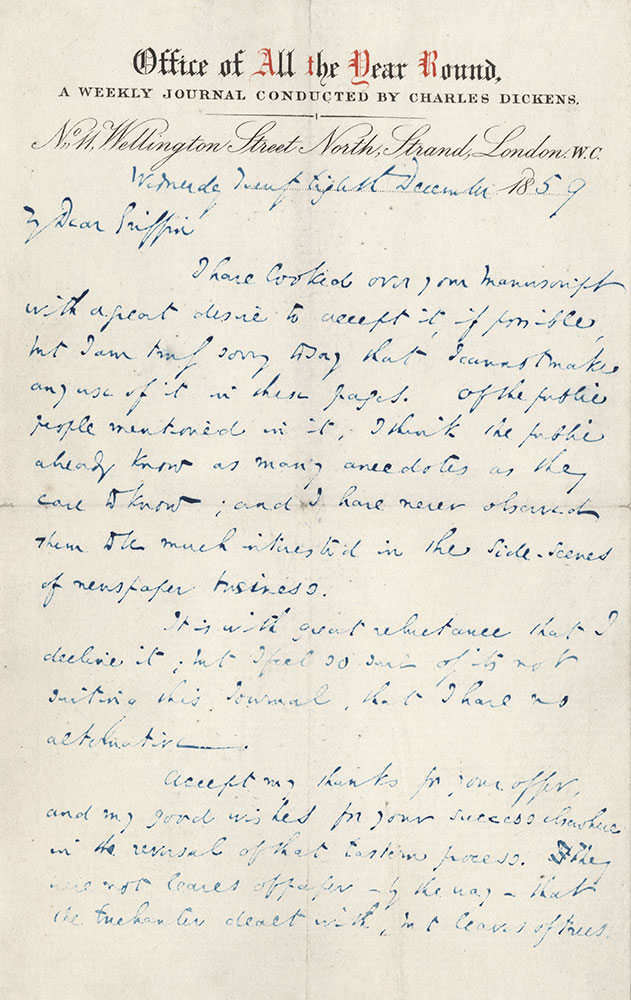 Office of All the Year Round,
A WEEKLY JOURNAL CONDUCTED BY CHARLES DICKENS.
No. 11, Wellington Street North, Strand, London. W.C.
Wednesday Twenty Eighth December 1859
My Dear Griffin
I have looked over your manuscript
with a great desire to accept it, if possible,
but I am truly sorry to say that I cannot make
any use of it in these pages. Of the public
people mentioned in it, I think the public
already know as many anecdotes as they
care to know ; and I have never observed
them to be much interested in the side-scenes
of newspaper business.
It is with great reluctance that I
decline it ; but I feel so sure of its not
suiting this Journal, that I have no
alternative.
Accept my thanks for your offer,
and my good wishes for your success elsewhere
in the reversal of that Eastern process. They
were not leaves of paper – by the way – that
the Enchanter dealt with, but leaves of trees.